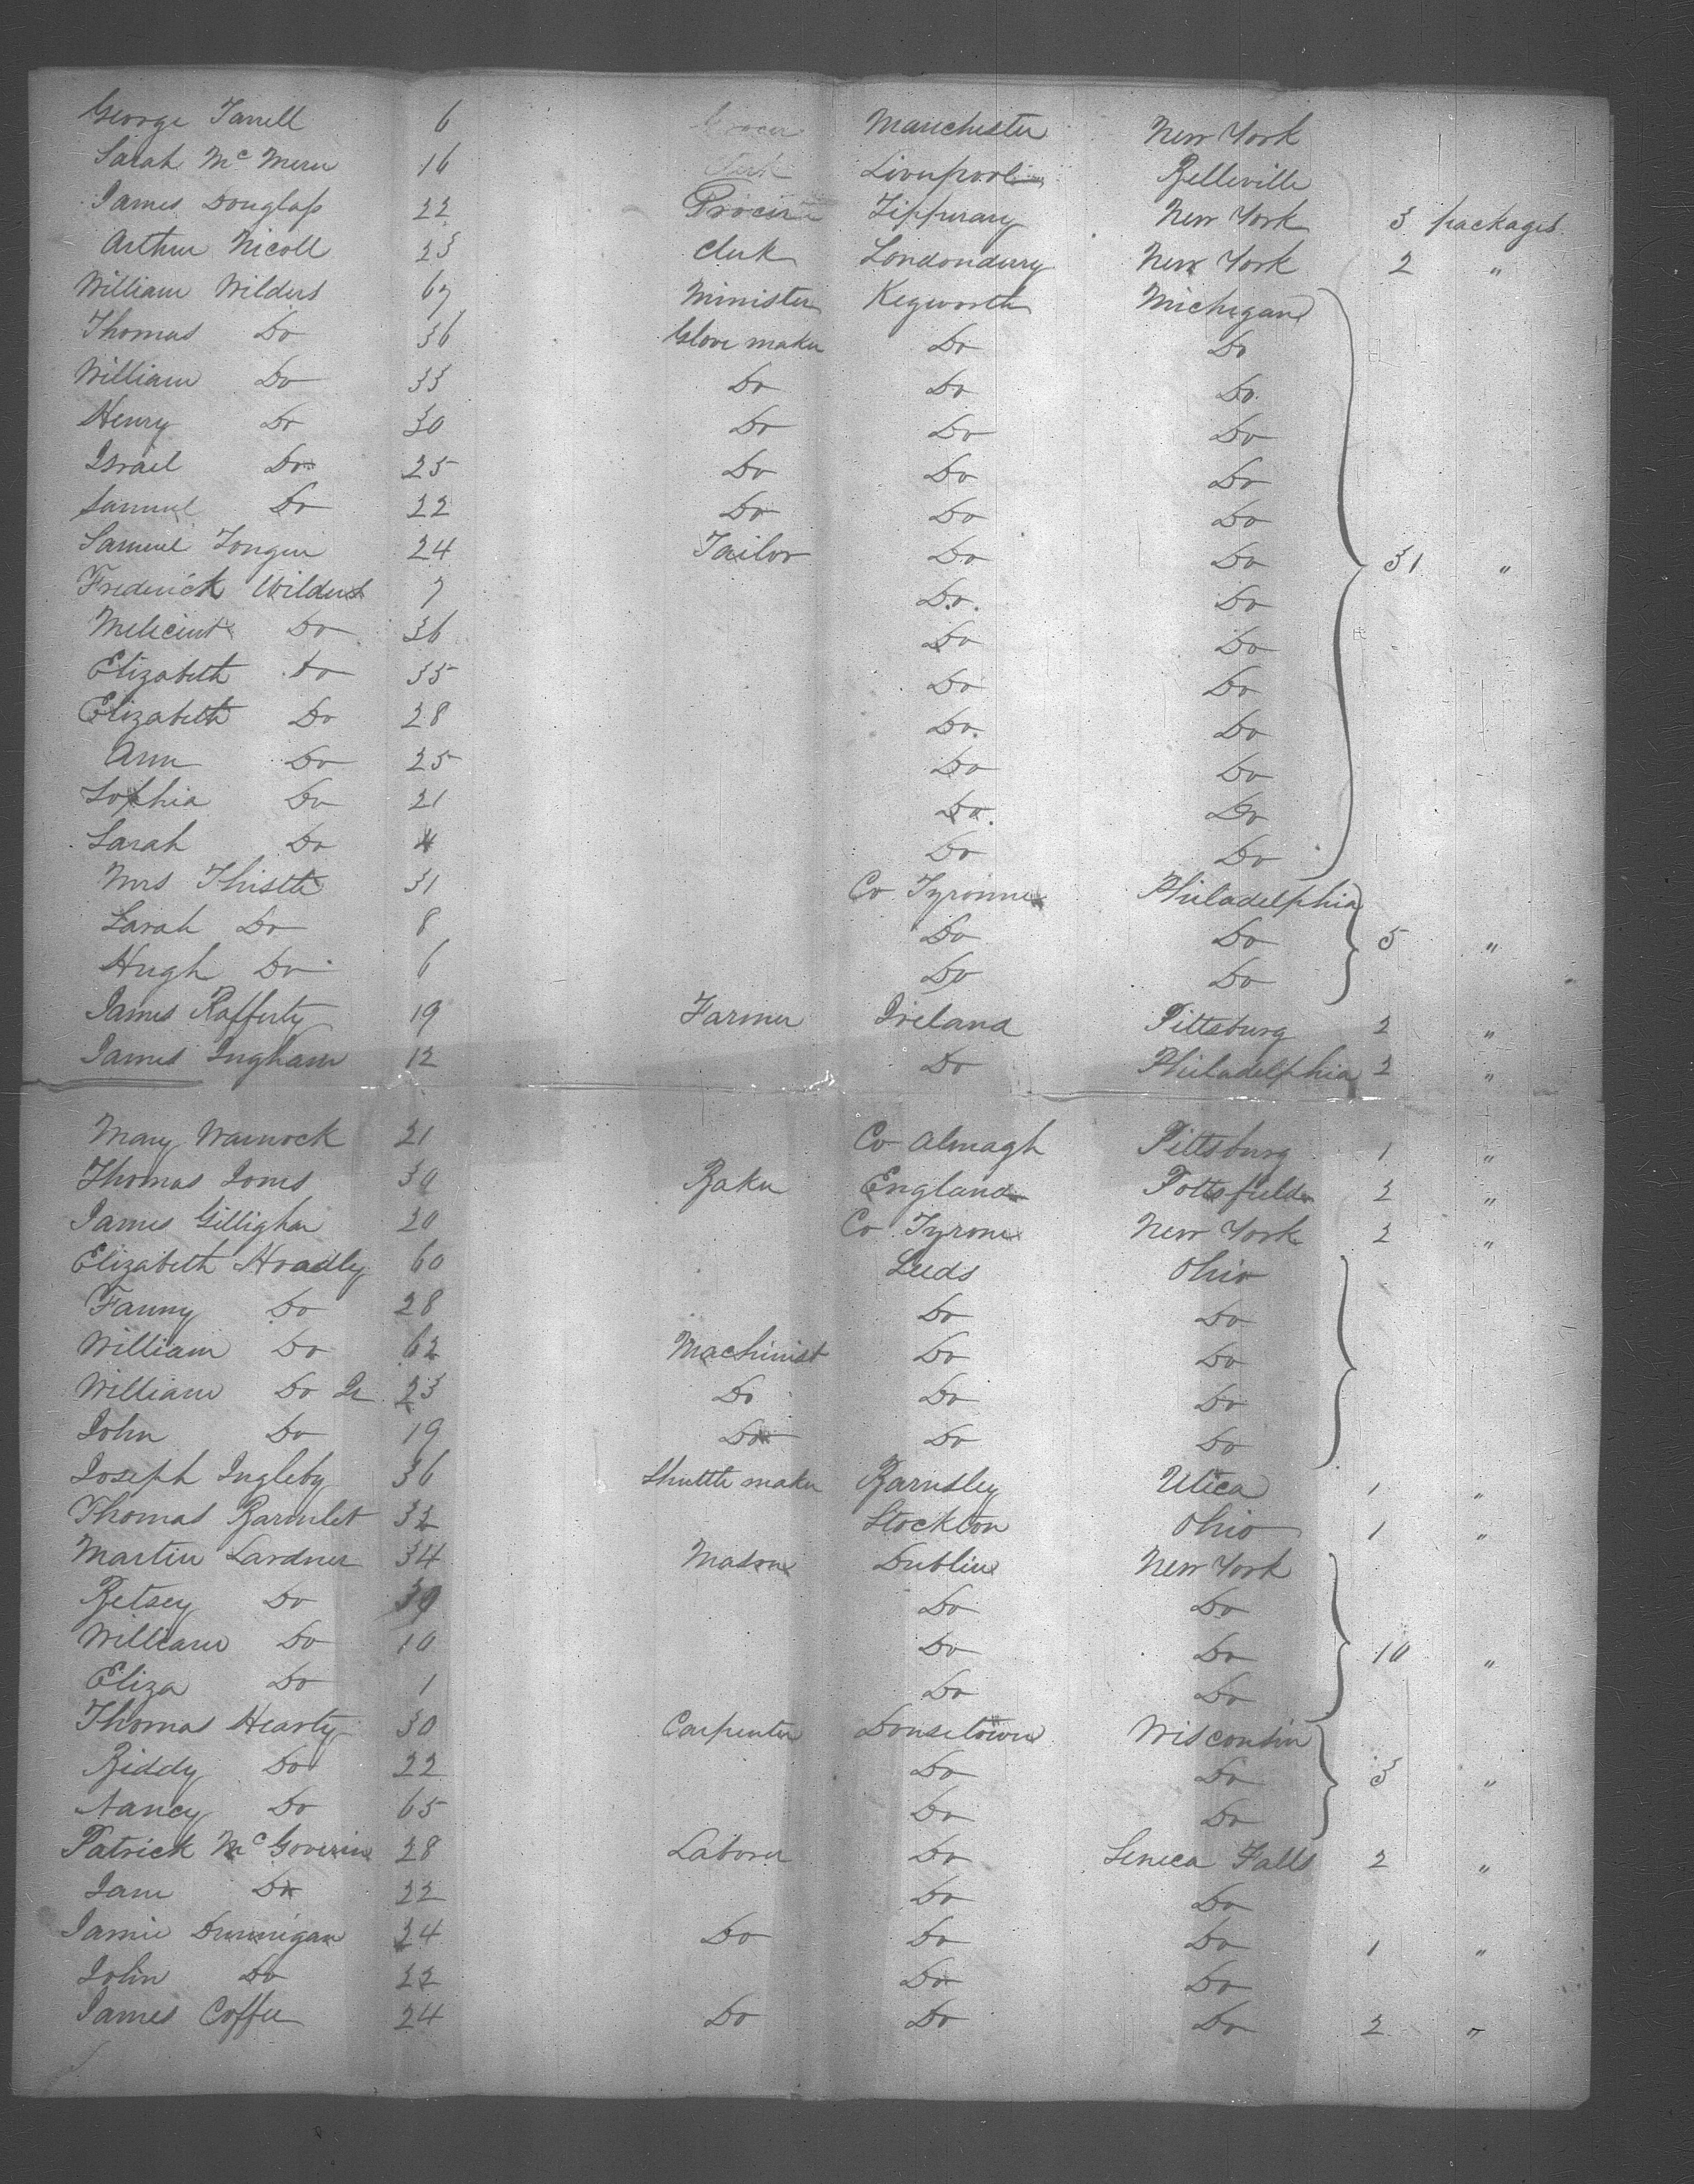 George Farrell 6 Grocer Manchester New York
Sarah Mc Meru 16 Clerk Liverpool Belleville
James Douglass 22 Grocer Tipperary New York 3 packages
Arthur Nicoll 23 Clerk Londonderry New York 2 "
William Wilders 67 Minister Kegworth Michigan
Thomas Do 36 Glove maker Do Do
William Do 33 Do Do Do
Henry Do 30 Do Do Do
Israel Do 25 Do Do Do
Samuel Do 22 Do Do Do
Samuel Tongue 24 Tailor Do Do 31 "
Frederick Wilders 7 Do Do
Melicent Do 36 Do Do
Elizabeth Do 35 Do Do
Elizabeth Do 28 Do Do
Ann Do 25 Do Do
Sophia Do 21 Do Do
Sarah Do 4 Do Do
Mrs Thistle 31 Co Tyronne Philadelphia
Sarah Do 8 Do Do 5 "
Hugh Do 6 Do Do
James Rafferty 19 Farmer Ireland Pittsburg 2 "
James Ingham 12 Do Philadelphia 2 "
Mary Warnock 21 Co Almagh Pittsburg 1 "
Thomas Jones 30 Baker England Pottsfield 2 "
James Gillighan 20 Co Tyrone New York 2 "
Elizabeth Hoadly 60 Leeds Ohio
Fanny Do 28 Do Do
William Do 62 Machinist Do Do
William Do Jr 23 Do Do Do
John Do 19 Do Do Do
Joseph Ingleby 36 Shuttle maker Barnsley Utica 1 "
Thomas Barmlet 32 Stockton Ohio 1 "
Martin Lardner 34 Mason Dublin New York
Betsey Do 30 Do Do
William Do 10 Do Do 10 "
Eliza Do 1 Do Do
Thomas Hearty 30 Carpenter Donsetown Wisconsin
Biddy Do 22 Do Do 3 "
Nancy Do 65 Do Do
Patrick Mc Goverin 28 Laborer Do Seneca Falls 2 "
Jane Do 22 Do Do
Jamie Dunnigan 24 Do Do Do 1 "
John Do 22 Do Do
James Coffee 24 Do Do Do 2 "